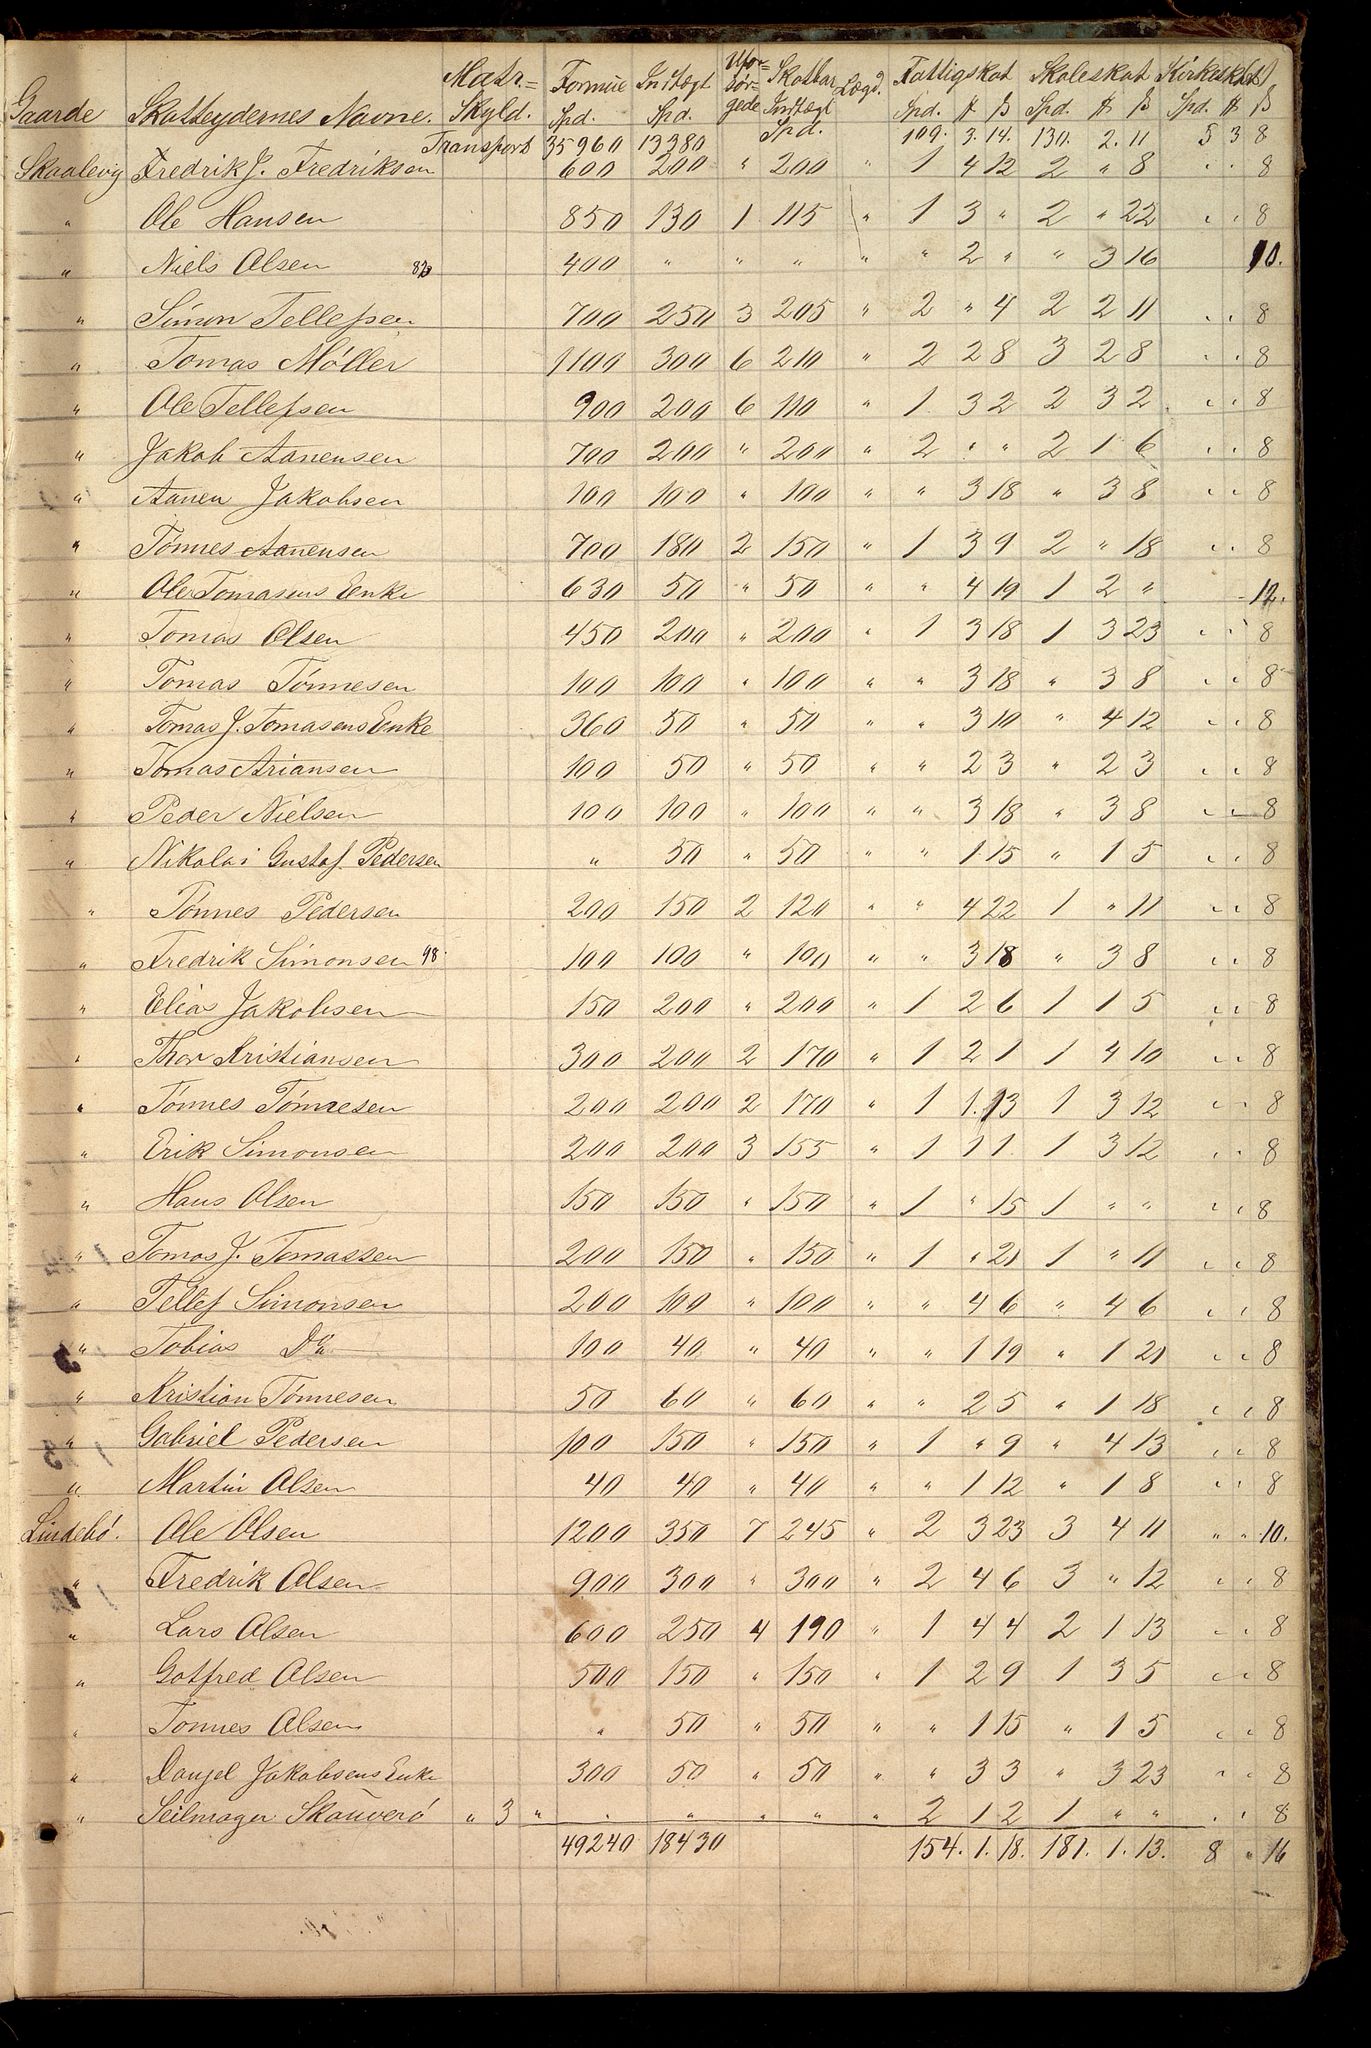 Gaarde Skatteydernes Navne. Matr.= Skyld. Formue Spd. Indtægt Spd. Ufor=sör=gede Skatbar Indtægt Spd. Lægd. Fattigskat Spd. ¤ ß Skoleskat Spd. ¤ ß Kirkeskat Spd. ¤ ß
Transport 35960 13380 109. 3. 14. 130. 2. 11 5 3 8
Skaalevig Fredrik J. Fredriksen 600 200 " 200 " 1 4 12 2 " 8 " " 8
" Ole Hansen 850 130 1 115 " 1 3 " 2 " 22 " " 8
" Niels Olsen 400 " " " " " 2 " " 3 16 10.
" Simon Tellefsen 700 250 3 205 " 2 " 4 2 2 11 " " 8
" Tomas Möller 1100 300 6 210 " 2 2 8 3 2 8 " " 8
" Ole Tellefsen 900 200 6 110 " 1 3 2 2 3 2 " " 8
" Jakob Aanensen 700 200 " 200 " 2 " " 2 1 6 " " 8
" Aanen Jakobsen 100 100 " 100 " " 3 18 " 3 8 " " 8
" Tönnes Aanensen 700 180 2 150 " 1 3 9 2 " 18 " " 8
" Ole Tomasens Enke 630 50 " 50 " " 4 19 1 2 " 12.
" Tomas Olsen 450 200 " 200 " 1 3 18 1 3 23 " " 8
" Tomas Tönnesen 100 100 " 100 " " 3 18 " 3 8 " " 8
" Tomas J. Tomasens Enke 360 50 " 50 " " 3 10 " 4 12 " " 8
" Tomas Ariansen 100 50 " 50 " " 2 3 " 2 3 " " 8
" Peder Nielsen 100 100 " 100 " " 3 18 " 3 8 " " 8
" Nikolai Gustaf Pedersen " 50 " 50 " " 1 15 " 1 5 " " 8
" Tönnes Pedersen 200 150 2 120 " " 4 22 1 " 11 " " 8
" Fredrik Simonsen 98. 100 100 " 100 " " 3 18 " 3 8 " " 8
" Elias Jakobsen 150 200 " 200 " 1 2 6 1 1 5 " " 8
" Thor Kristiansen 300 200 2 170 " 1 2 1 1 4 10 " " 8
" Tönnes Tönnesen 200 200 2 170 " 1 1. 13 1 3 12 " " 8
" Erik Simonsen 200 200 3 155 " 1 1 1. 1 3 12 " " 8
" Hans Olsen 150 150 " 150 " 1 " 15 1 " " " " 8
" Tomas J. Tomassen 200 150 " 150 " 1 " 21 1 " 11 " " 8
" Tellef Simonsen 200 100 " 100 " " 4 6 " 4 6 " " 8
" Tobias Do 100 40 " 40 " " 1 19 " 1 21 " " 8
" Kristian Tönnesen 50 60 " 60 " " 2 5 " 1 18 " " 8
" Gabriel Pedersen 100 150 " 150 " 1 " 9 " 4 13 " " 8
" Martin Olsen 40 40 " 40 " " 1 12 " 1 8 " " 8
Lindebö. Ole Olsen 1200 350 7 245 " 2 3 23 3 4 11 " " 10.
" Fredrik Olsen 900 300 " 300 " 2 4 6 3 " 12 " " 8
" Lars Olsen 600 250 4 190 " 1 4 4 2 1 13 " " 8
" Gotfred Olsen 500 150 " 150 " 1 2 9 1 3 5 " " 8
" Tönnes Olsen " 50 " 50 " " 1 15 " 1 5 " " 8
" Danjel Jakobsens Enke 300 50 " 50 " " 3 3 " 3 23 " " 8
" Seilmager Skauverö " 3 " " " " " " 2 1 2 1 " " " " 8
49240 18430 154. 1. 18. 181. 1. 13. 8 " 16